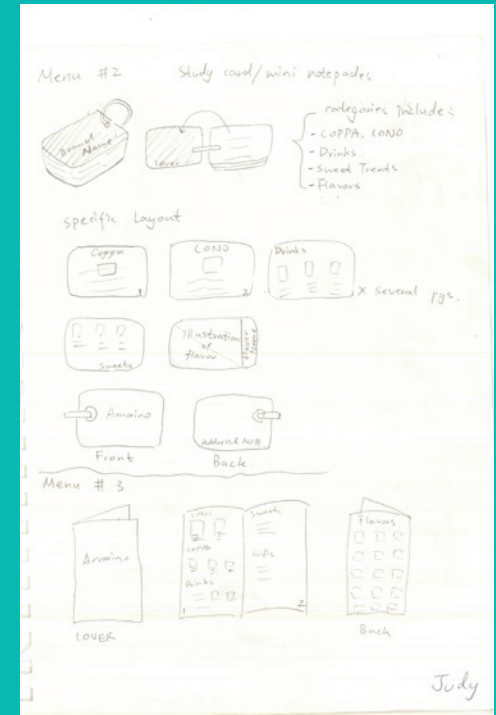 Menu #2 Study card/mini notepades
Brand Name
cover
categories Include:
- COPPA, CONO
- Drinks.
- Sweet Treats
- Flavors
specific Layout
Coppa
1
CONO
2
Drinks
x several pgs.
Sweets
Illustration of flavor
Flavor Name
Amaino
Front
Back
Menu #3
Amaino
COVER
CONO
COPPA
Drinks
1
Sweets
2
Flavors
Back
Judy